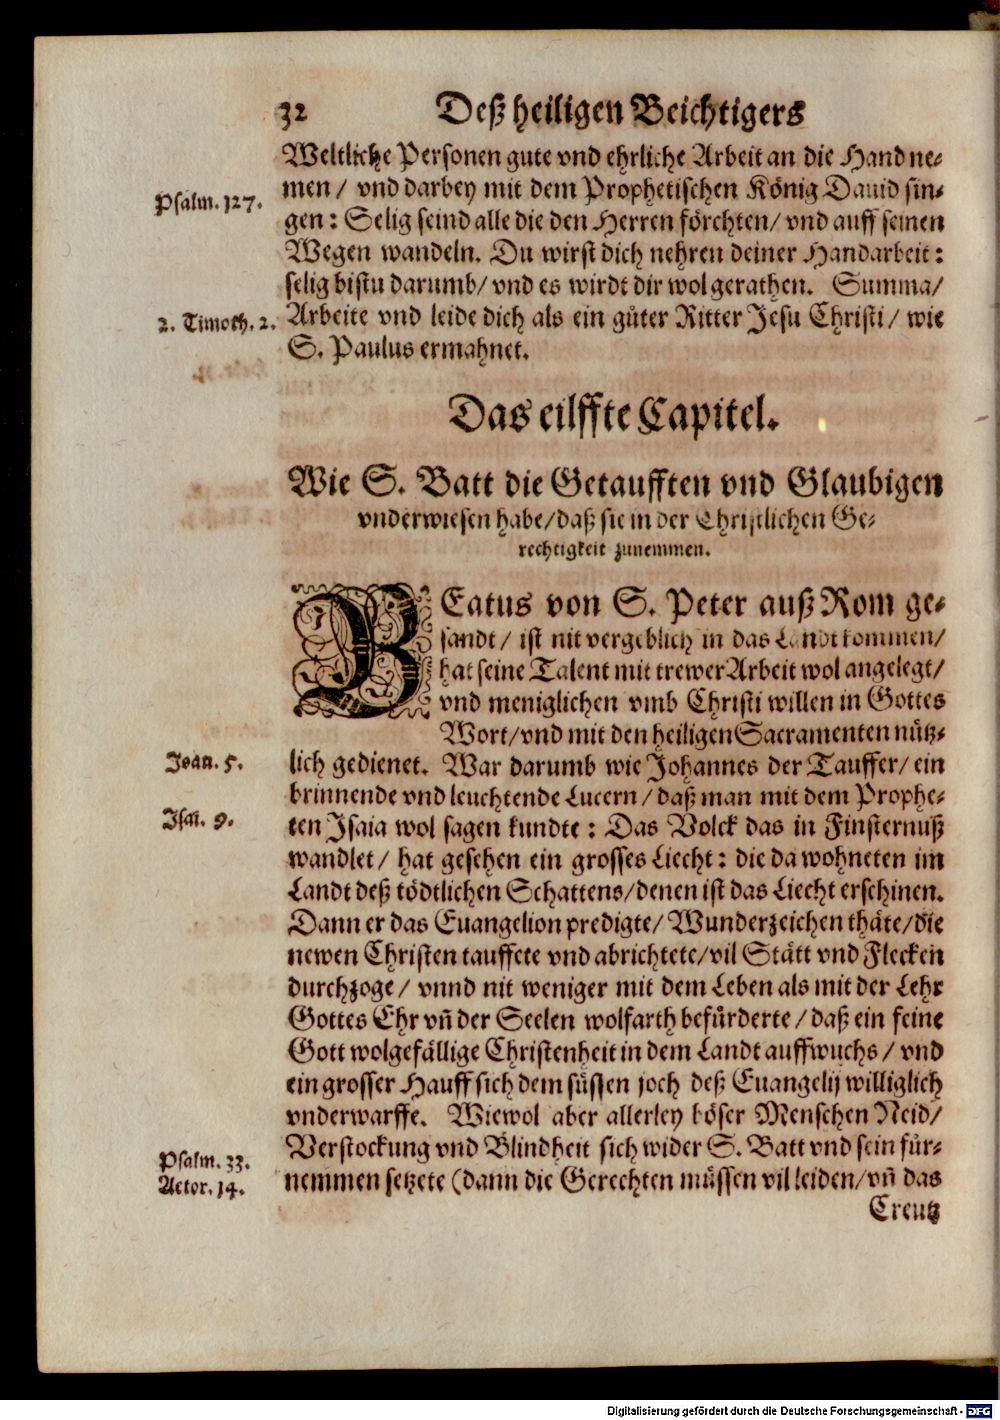 32 Deß heiligen Beichtigers
Weltliche Personen gute vnd ehrliche Arbeit an die Hand ne-
men / vnd darbey mit dem Prophetischen König Dauid sin-
Psalm. 127.
gen: Selig seind alle die den Herren förchten/ vnd auff seinen
Wegen wandeln. Du wirst dich nehren deiner Handarbeit:
selig bistu darumb/ vnd es wirdt dir wol gerathen. Summa/
2. Timoth. 2.
Arbeite vnd leide dich als ein gůter Ritter Jesu Christi / wie
S. Paulus ermahnet.
Das eilffte Capitel.
Wie S. Batt die Getaufften vnd Glaubigen
vnderwiesen habe/daß sie in der Christlichen Ge-
rechtigkeit zunemmen.
BEatus von S. Peter auß Rom ge-
sandt / ist nit vergeblich in das Landt kommen/
hat seine Talent mit trewer Arbeit wol angelegt/
vnd meniglichen vmb Christi willen in Gottes
Wort/vnd mit den heiligen Sacramenten nütz-
Joan. 5.
lich gedienet. War darumb wie Johannes der Tauffer/ ein
brinnende vnd leuchtende Lucern / daß man mit dem Prophe-
Isai. 9.
ten Isaia wol sagen kundte: Das Volck das in Finsternuß
wandlet/ hat gesehen ein grosses Liecht: die da wohneten im
Landt deß tödtlichen Schattens/denen ist das Liecht erschinen.
Dann er das Euangelion predigte/ Wunderzeichen thäte/die
newen Christen tauffete vnd abrichtete/vil Stätt vnd Flecken
durchzoge / vnnd nit weniger mit dem Leben als mit der Lehr
Gottes Ehr vñ der Seelen wolfarth befürderte / daß ein feine
Gott wolgefällige Christenheit in dem Landt auffwuchs / vnd
ein grosser Hauff sich dem süssen joch deß Euangelij williglich
vnderwarffe. Wiewol aber allerley böser Menschen Neid/
Verstockung vnd Blindheit sich wider S. Batt vnd sein für-
Psalm. 33.
Actor. 14.
nemmen setzete (dann die Gerechten müssen vil leiden/vñ das
Creutz
Digitalisierung gefördert durch die Deutsche Forschungsgemeinschaft - DFG